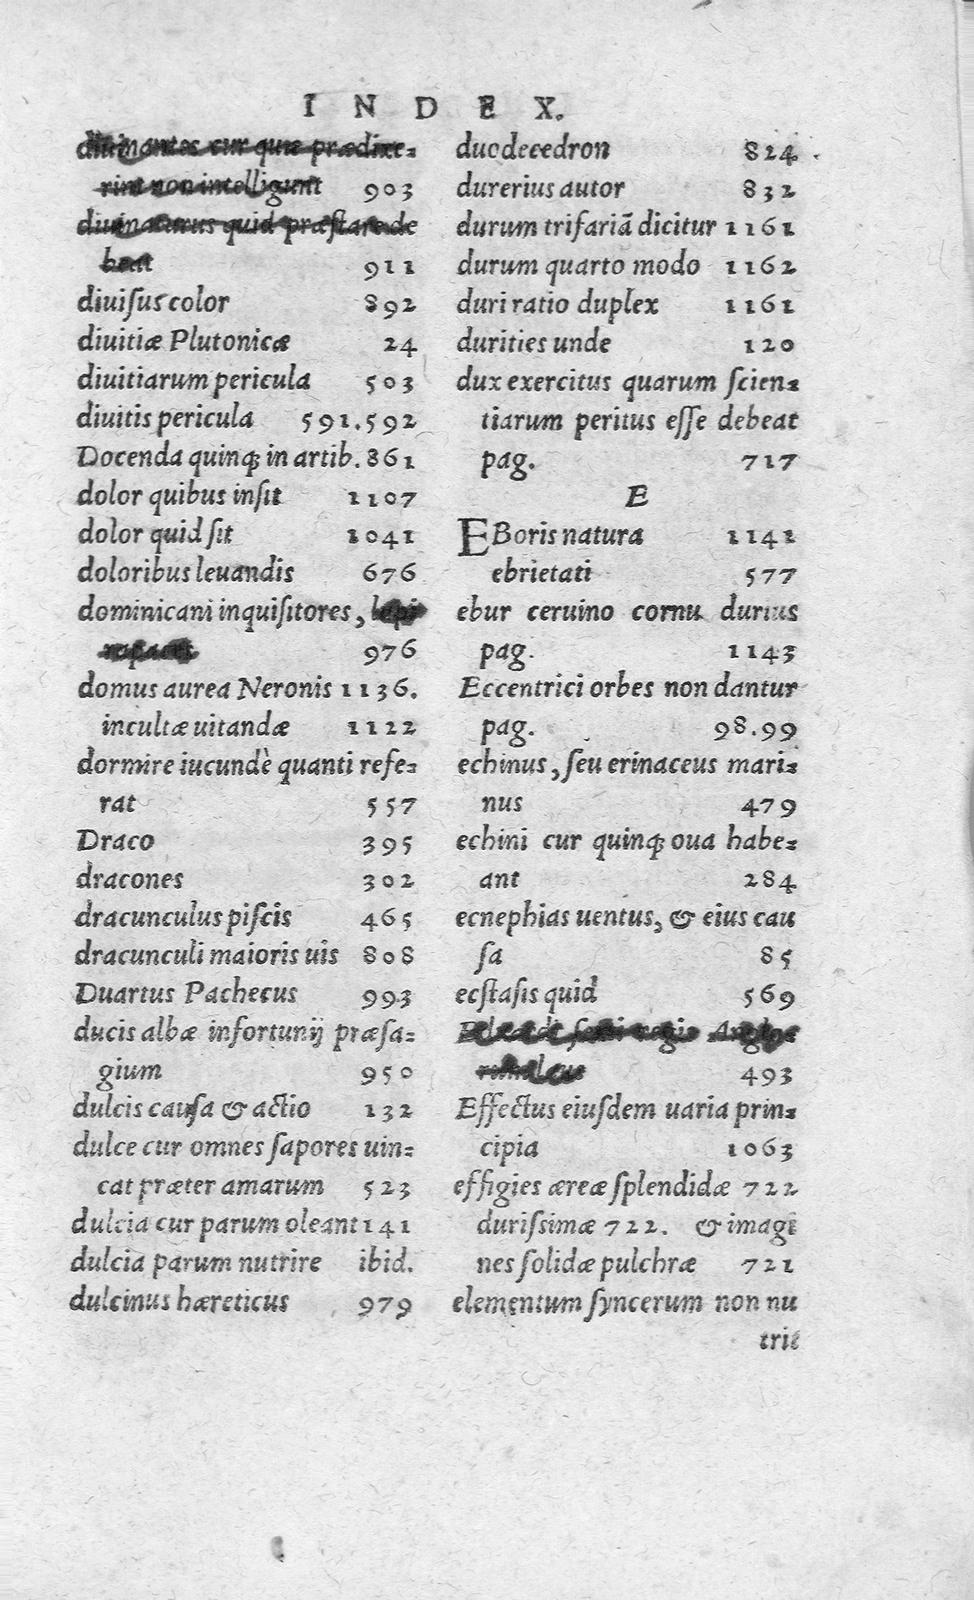 INDEX.
diuinantes cur quæ prædixe-
rint non intelligunt 903
diuinaturus quid præstare de
beat 911
diuiſus color 892
diuitiæ Plutonicæ 24
diuitiarum pericula 503
diuitis pericula 591.592
Docenda quinqꝫ in artib. 861
dolor quibus inſit 1107
dolor quid ſit 1041
doloribus leuandis 676
dominicani inquiſitores, lupi
rapaces 976
domus aurea Neronis 1136.
incultæ uitandæ 1122
dormire iucundè quanti refe-
rat 557
Draco 395
dracones 302
dracunculus piſcis 465
dracunculi maioris uis 808
Duartus Pachecus 993
ducis albæ infortunij præſa-
gium 950
dulcis cauſa & actio 132
dulce cur omnes ſapores uin-
cat præter amarum 523
dulcia cur parum oleant 141
dulcia parum nutrire ibid.
dulcinus hæreticus 979
duodecedron 824
durerius autor 832
durum trifariā dicitur 1161
durum quarto modo 1162
duri ratio duplex 1161
durities unde 120
dux exercitus quarum ſcien-
tiarum peritus eſſe debeat
pag. 717
E
EBoris natura 1141
ebrietati 577
ebur ceruino cornu durius
pag. 1143
Eccentrici orbes non dantur
pag. 98.99
echinus, ſeu erinaceus mari-
nus 479
echini cur quinqꝫ oua habe-
ant 284
ecnephias uentus, & eius cau
ſa 85
ecſtaſis quid 569
ſexti regis
493
Effectus eiuſdem uaria prin-
cipia 1063
effigies æreæ ſplendidæ 722
duriſsimæ 722. & imagi
nes ſolidæ pulchræ 721
elementum ſyncerum non nu
trit